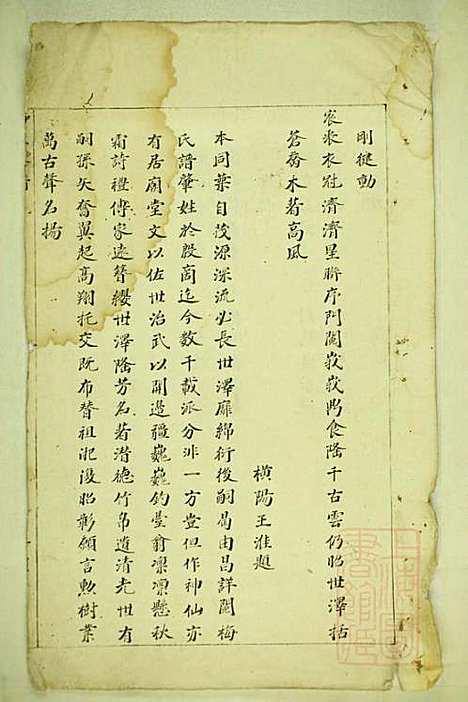 剛健動
裳衣冠濟濟星聯序門閥峩峩鼎食隆千古雲仍昭世澤括
蒼喬木著高風
橫陽王淮題
本同葉自茂源深流必長世澤靡綿衍後嗣曷由昌詳閱梅
氏譜肇姓於殷商迄今數千載派分非一方豈但作神仙亦
有居廟堂文以佐世治武以開邊疆巍巍釣臺翁凜凜懸秋
霜詩禮傳家遠簪纓世澤隆芳名著潛德竹帛遺清光世有
嗣孫矢奮翼起高翔托交既布替祖汜復昭彰願言勲樹業
萬古聲名揚